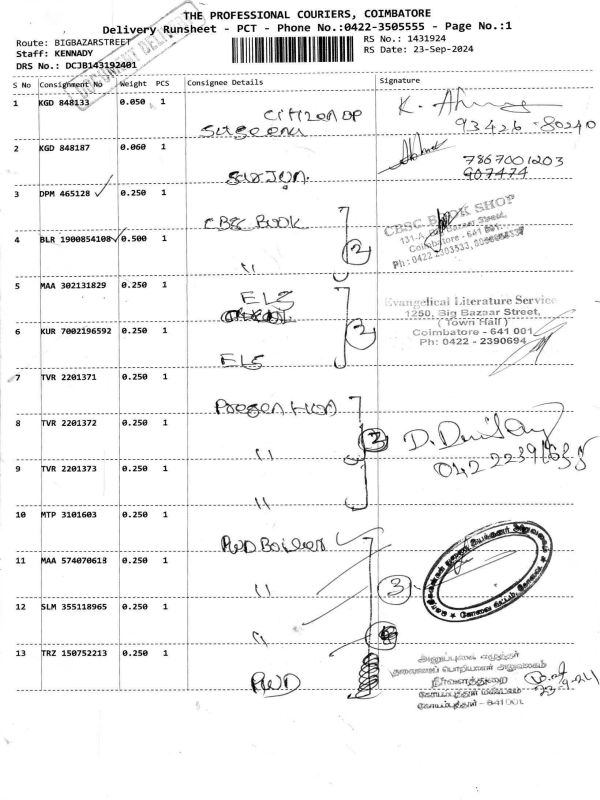 THE PROFESSIONAL COURIERS, COIMBATORE
Delivery Runsheet - PCT - Phone No.:0422-3505555 - Page No.:1
Route: BIGBAZARSTREET
Staff: KENNADY
DRS No.: DCJB143192401
RS No.: 1431924
RS Date: 23-Sep-2024
S No Consignment No Weight PCS Consignee Details Signature
1 KGD 848133 0.050 1
K. Ahm
93426-80240
2 KGD 848187 0.060 1
7867001203
907474
3 DPM 465128 0.250 1
CBSC BOOK
CBSC BOOK SHOP
4 BLR 1900854108 0.500 1 " 2
131-A, Big Bazaar Street,
Coimbatore - 641 001
5 MAA 302131829 0.250 1
ELS
Evangelical Literature Service
1250, Big Bazaar Street,
( Town Hall )
Coimbatore - 641 001
Ph: 0422 - 2390694
6 KUR 7002196592 0.250 1 2
ELS
7 TVR 2201371 0.250 1
8 TVR 2201372 0.250 1 "
9 TVR 2201373 0.250 1 "
10 MTP 3101603 0.250 1
PWD Boiler
11 MAA 574070613 0.250 1 " 3
12 SLM 355118965 0.250 1 "
13 TRZ 150752213 0.250 1
PWD
அனுப்புகை எழுத்தர்
தலைமைப் பொறியாளர் அலுவலகம்
நீர்வளத்துறை
கோயம்புத்தூர் மண்டலம்
கோயம்புத்தூர் - 641 001.
23.9.24